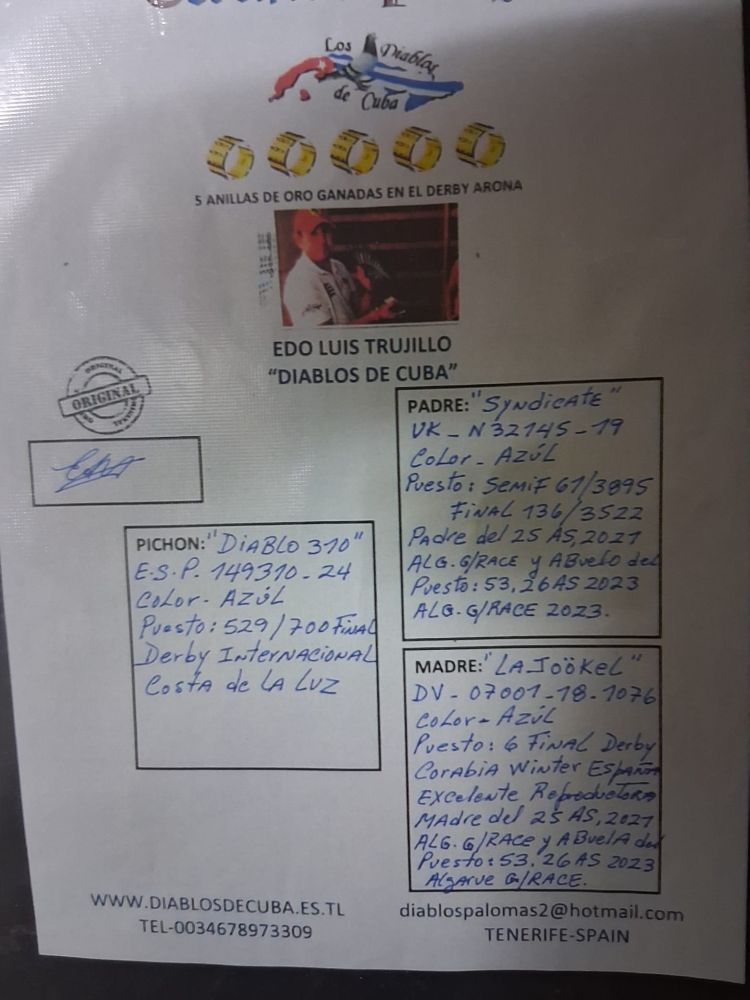 Los Diablos
de Cuba
5 ANILLAS DE ORO GANADAS EN EL DERBY ARONA
EDO LUIS TRUJILLO
"DIABLOS DE CUBA"
ORIGINAL
ORIGINAL
ORIGINAL
PICHON: "DIABLO 310"
E.S.P. 149310-24
COLOR- AZÚL
Puesto: 529/700 FINAL
Derby INTERNACIONAL
COSTA de LA LUZ
PADRE: "SYNDICATE"
UK-N32145-19
COLOR- AZÚL
Puesto: SEMIF 61/3895
FINAL 136/3522
Padre del 25 AS, 2021
ALG. G/RACE y ABuelo del
Puesto: 53, 26 AS 2023
ALG. G/RACE 2023.
MADRE: "LA JOÖKEL"
DV-07001-18-1076
COLOR- AZÚL
Puesto: 6 FINAL Derby
CORABIA WINTER ESPAÑA
EXCELENTE REPRODUCTORA
MADRE del 25 AS, 2021
ALG. G/RACE y ABUELA del
Puesto: 53, 26 AS 2023
Algarve G/RACE.
WWW.DIABLOSDECUBA.ES.TL
TEL-0034678973309
diablospalomas2@hotmail.com
TENERIFE-SPAIN